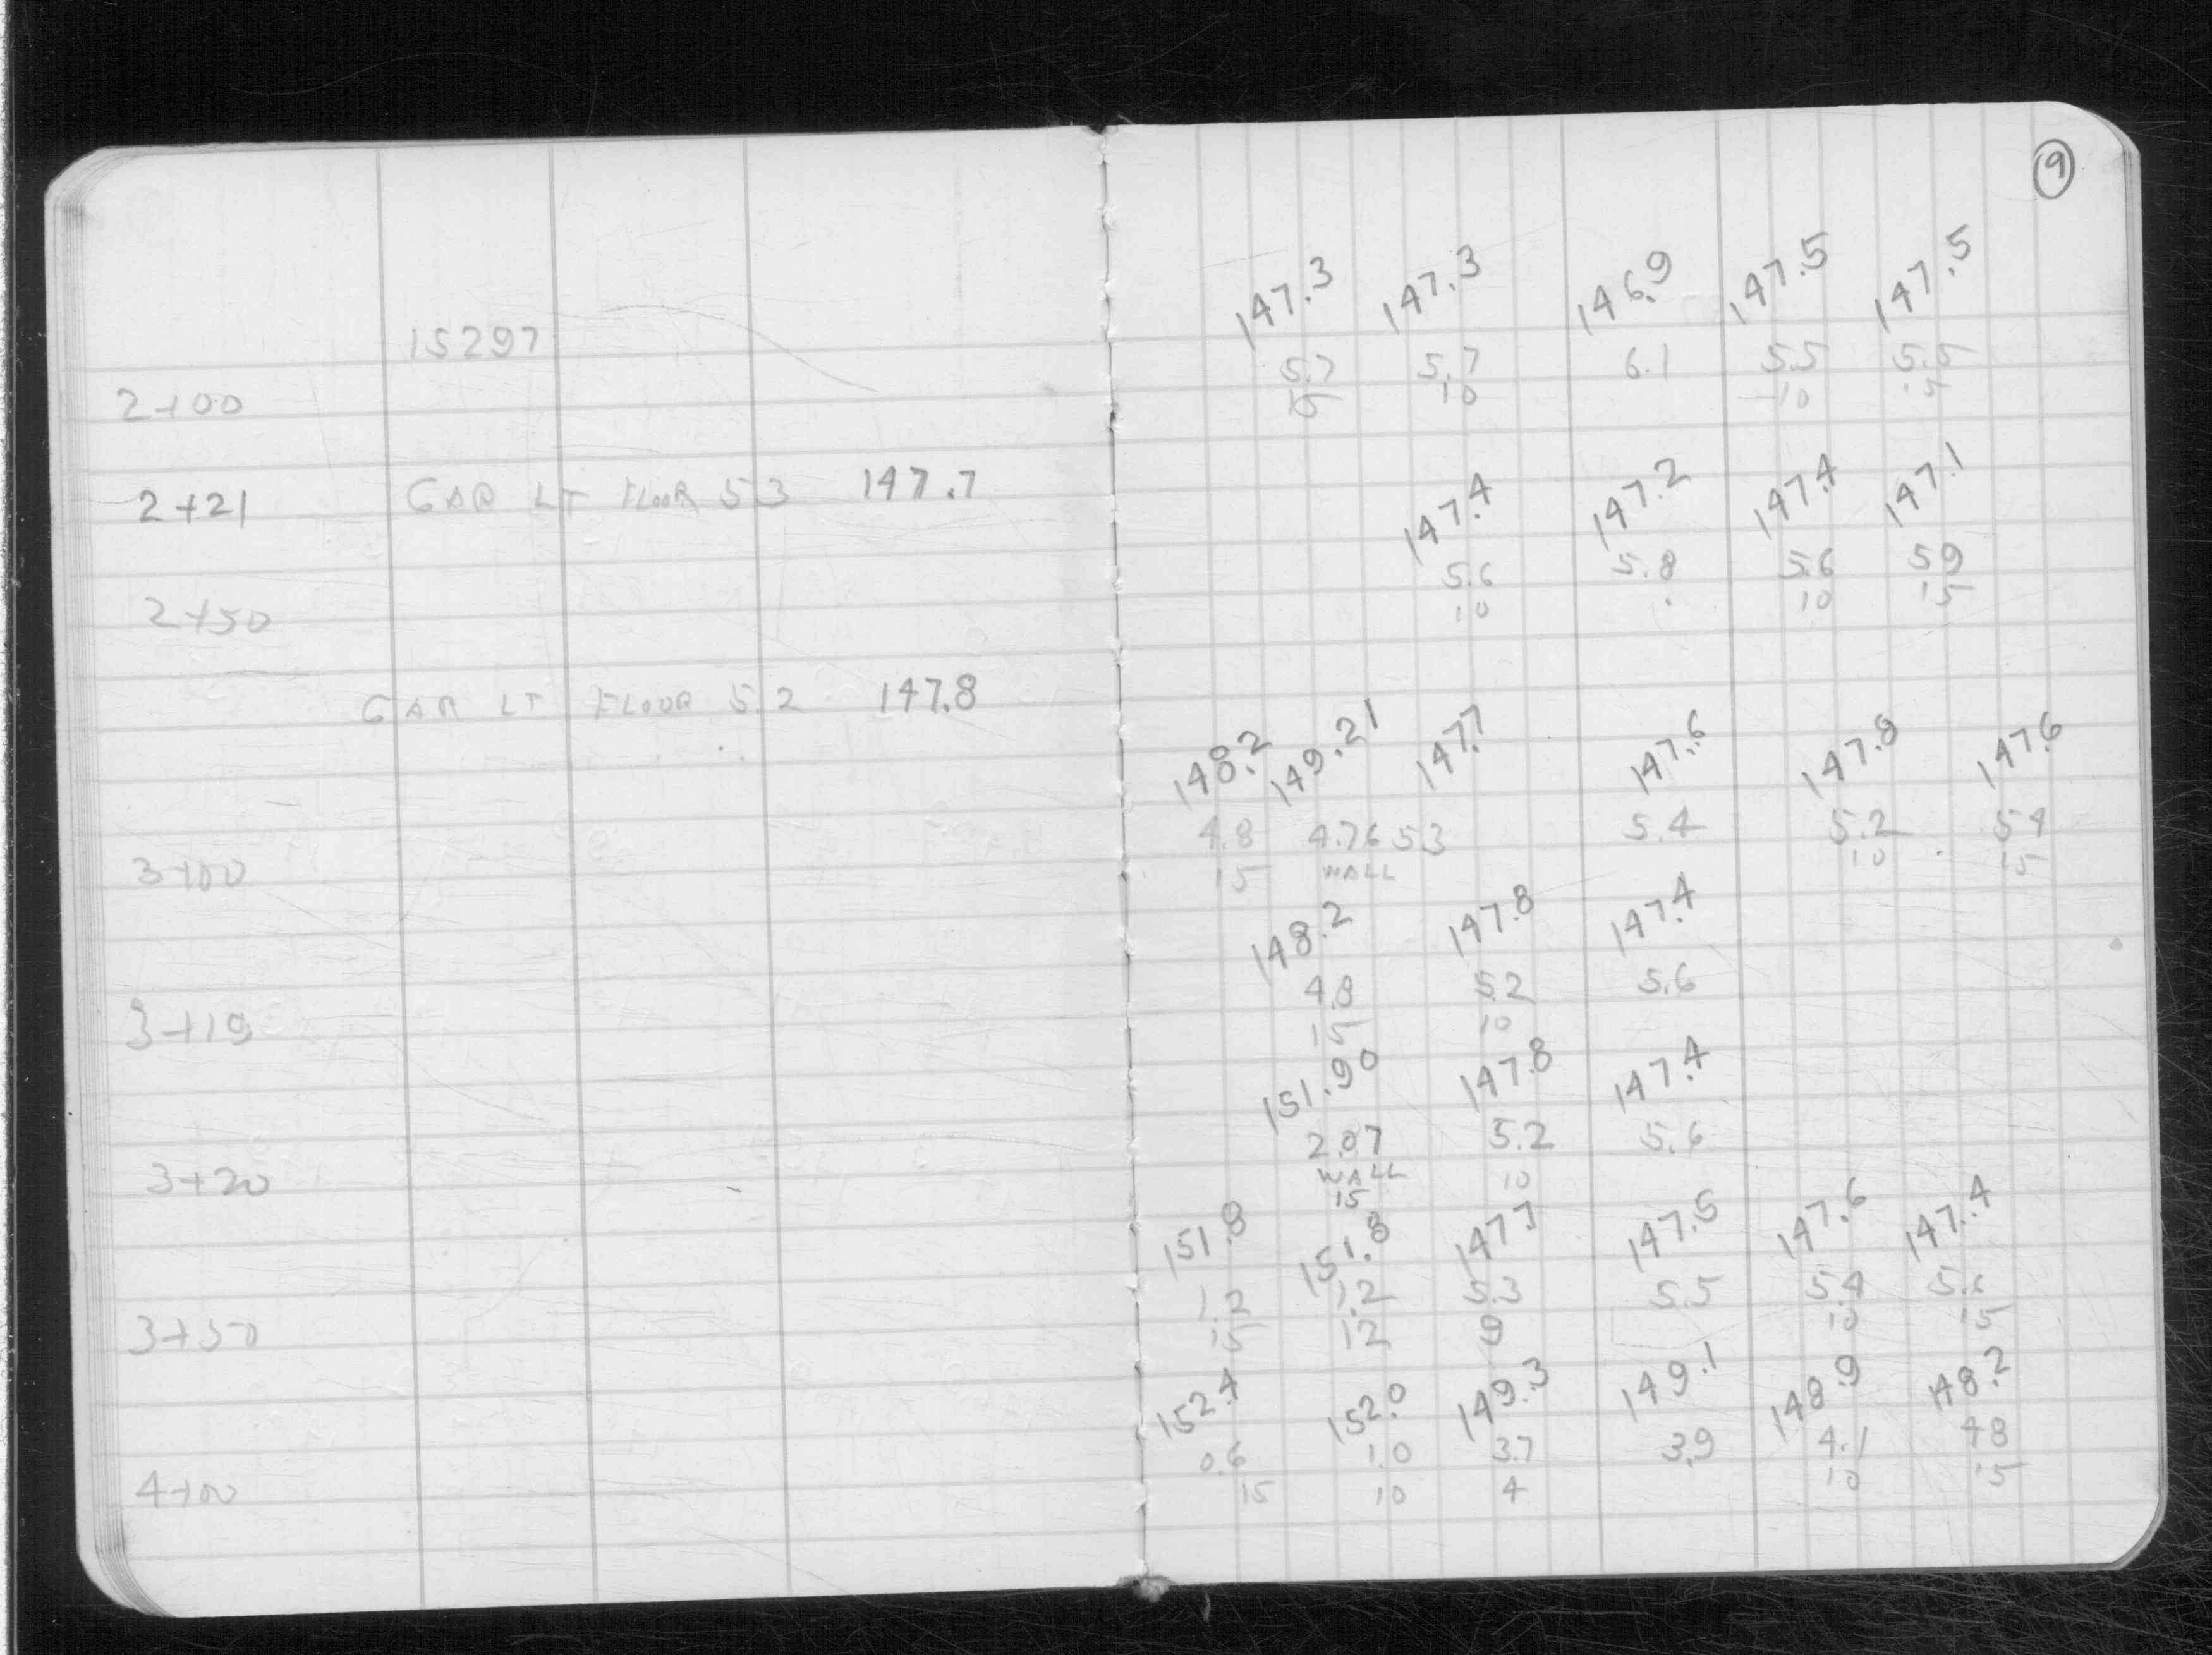 9
147.3 147.3 146.9 147.5 147.5
15297
5.7 5.7 6.1 5.5 5.5
2+00 15 10 10 15
2+21 GAR LT FLOOR 5 3 147.7
147.4 147.2 147.4 147.1
5.6 5.8 5.6 5 9
2+50 10 10 15
GAR LT FLOOR 5.2 147.8
148.2 149.21 147.7 147.6 147.8 147.6
4.8 4.76 5 3 5.4 5.2 5 4
3+00 15 WALL 10 15
148.2 147.8 147.4
4.8 5.2 5.6
3+19 15 10
151.90 147.8 147.4
2.07 5.2 5.6
3+20 WALL 10
15
151.8 151.8 147.7 147.5 147.6 147.4
1.2 1.2 5.3 5.5 5.4 5.6
3+50 15 12 9 10 15
152.4 152.0 149.3 149.1 148.9 148.2
0.6 1.0 3.7 3.9 4.1 4 8
4+00 15 10 4 10 15